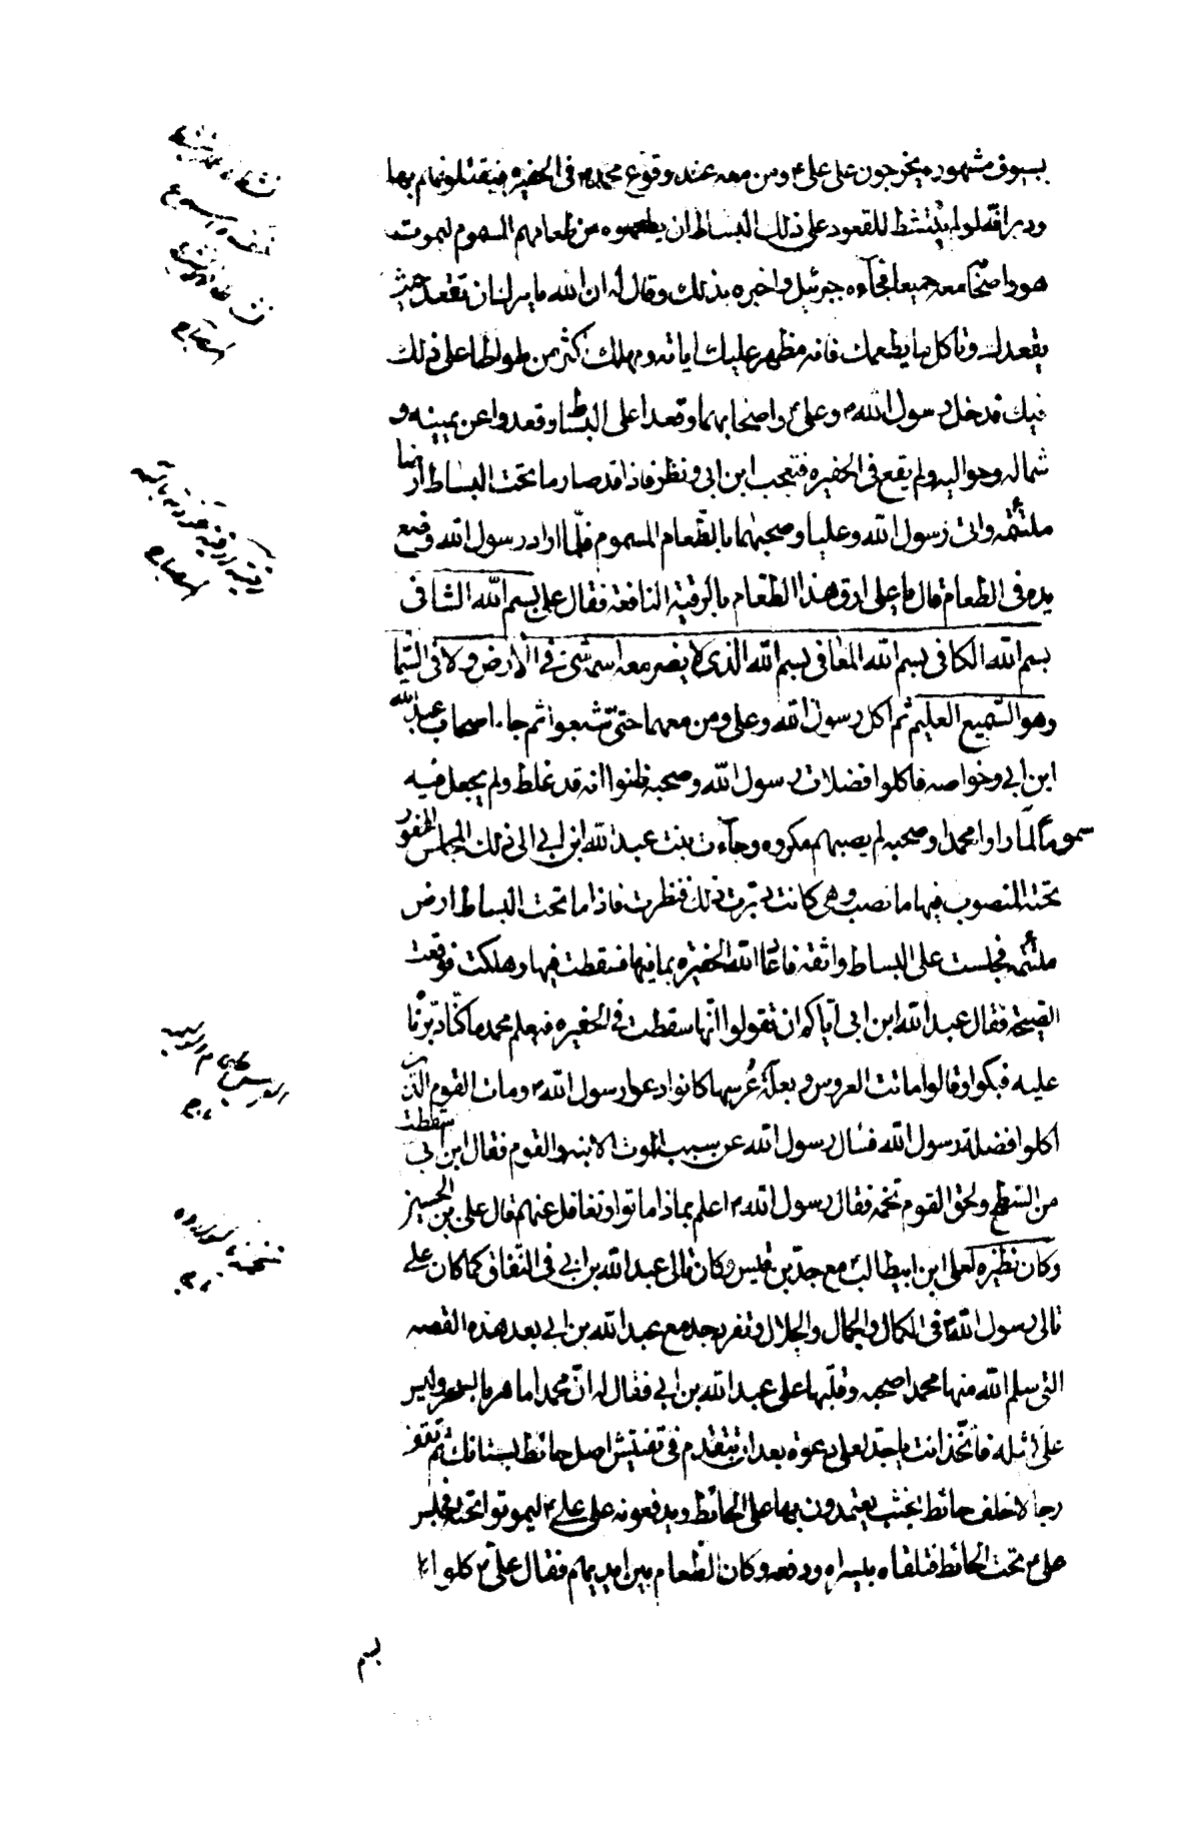 بسيوف مشهوره يخرجون على على ع ومن معه عند وقوع محمد ص فى الحفيره فيقتلونهم بها
ودبر انه لو لم ينشط للقعود على ذلك البساط ان يطعموه من طعامهم المسموم ليموت
هو واصحابه معه جميعا فجآءه جبرئيل واخبره بذلك وقال له ان الله يامرك ان تقعد حيث
يقعدك وتاكل مما يطعمك فانه مظهر عليك اياته ومهلك اكثر من تواطا على ذلك
فيك فدخل رسول الله ص وعلى ع واصحابهما وقعدا على البساط وقعدوا عن يمينه و
شماله وحواليه ولم يقع فى الحفيره فتعجب ابن ابى ونظر فاذا قد صار ما تحت البساط ارضا
ملتئمه واتى رسول الله وعليا وصحبهما بالطعام المسموم فلما اراد رسول الله وضع
يده فى الطعام قال يا على ارق هذا الطعام بالرقية النافعه فقال على بسم الله الشافى
بسم الله الكافى بسم الله المعافى بسم الله الذى لا يضر معه اسمه شئ فى الارض ولا فى السما
وهو السميع العليم ثم اكل رسول الله وعلى ومن معهما حتى شبعوا ثم جاء اصحاب عبدالله
ابن ابى وخواصه فاكلوا فضلات رسول الله وصحبه ظنوا انه قد غلط ولم يجعل فيه
سموماً لمّا راوا محمدا وصحبه لم يصبهم مكروه وجآءت بنت عبد الله ابن ابى الى ذلك المجلس المحفور
تحته المنصوب فيها ما نصب وهى كانت دبرت ذلك فنظرت فاذا ما تحت البساط ارض
ملتئمه فجلست على البساط واثقه فاعاد الله الحفيره بما فيها فسقطت فيها وهلكت فوقعت
الصيحه فقال عبد الله ابن ابى اياكم ان تقولوا انها سقطت فى الحفيره فيعلم محمد ما كنّا دبرنا
عليه فبكوا وقالوا ماتت العروس وبعلة عُرسها كانوا دعوا رسول الله ص ومات القوم الذين
اكلوا فضلة رسول الله فسئال رسول الله عن سبب الموت الابنه والقوم فقال ابن ابى سقطت
من السطح ولحق القوم تخمه فقال رسول الله ص اعلم بماذا ماتوا وتغافل عنهم قال على بن الحسين
وكان نظيره لعلى ابن ابيطالب مع جدّ بن قيس وكان تالى عبد الله بن ابى فى النفاق كما كان على
تالى رسول الله ص فى الكمال والجمال والجلال وتفرد جد مع عبد الله بن ابى بعد هذه القصه
التى سلم الله منها محمدا وصحبه وقلبها على عبد الله بن ابى فقال له انّ محمدا ماهر بالسحر وليس
على كمثله فاتّخذ انت يا جدّ لعلى دعوة بعد ان تتقدم فى تفتيش اصل حائط بستانك ثم تقف
رجالا خلف حائط بخشب يعتمدون بها على الحائط ويدفعونه على على ع ليموتوا تحته فجلس
على ع تحت الحائط فتلقاه بيسراه ودفعه وكان الطعام بين ايديهم فقال على ع كلوا
بسم